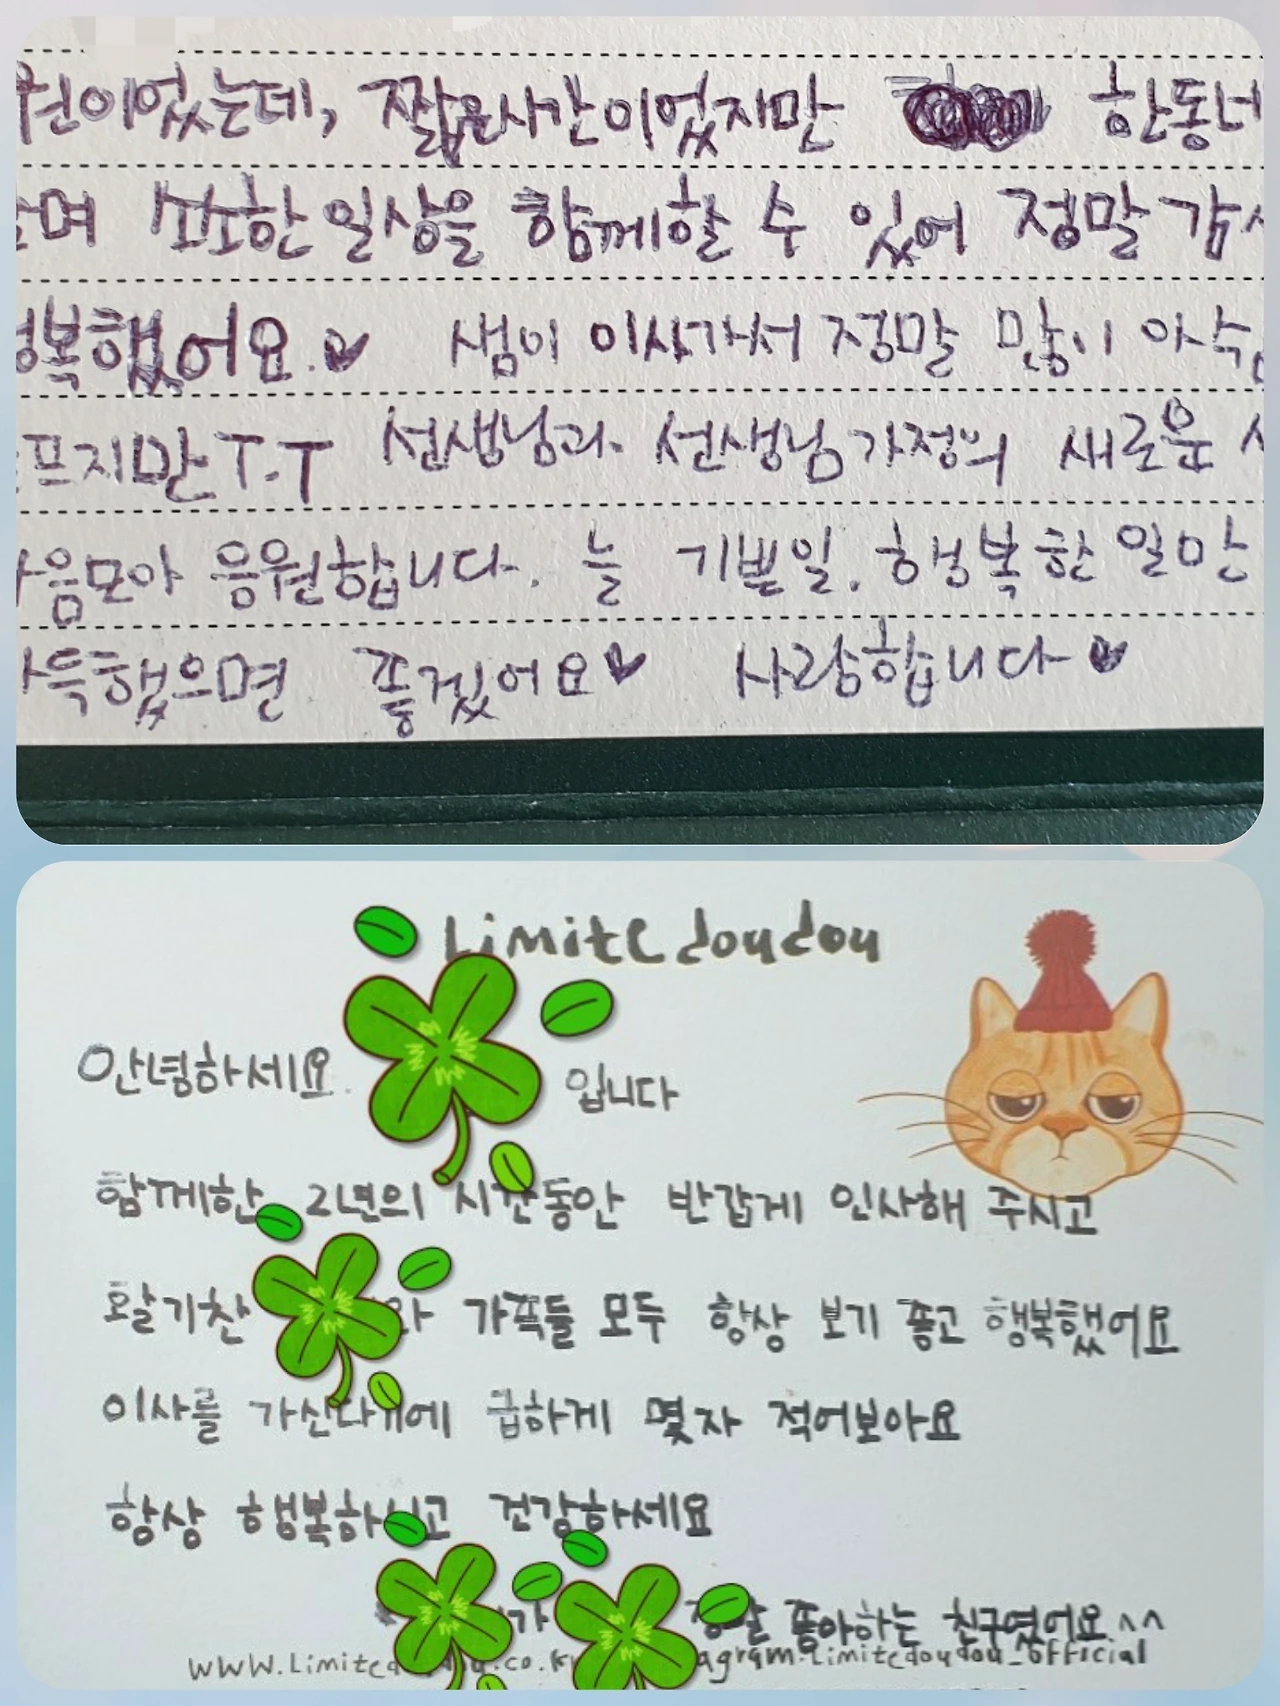 원이었는데, 짧은시간이었지만 한동네
며 소소한 일상을 함께할 수 있어 정말 감사
복했어요.♥ 샘이 이사가서 정말 많이 아쉽
프지만 T.T 선생님과. 선생님 가정의 새로운
음모아 응원합니다. 늘 기쁜일. 행복한 일만
득했으면 좋겠어요♥ 사랑합니다♥
Limite doudou
안녕하세요. 입니다
함께한 2년의 시간동안 반갑게 인사해 주시고
활기찬 와 가족들 모두 항상 보기 좋고 행복했어요
이사를 가신다기에 급하게 몇자 적어보아요
항상 행복하시고 건강하세요
가 정말 좋아하는 친구였어요.^^
www.Limitedoudou.co.kr agram.limitedoudou_official